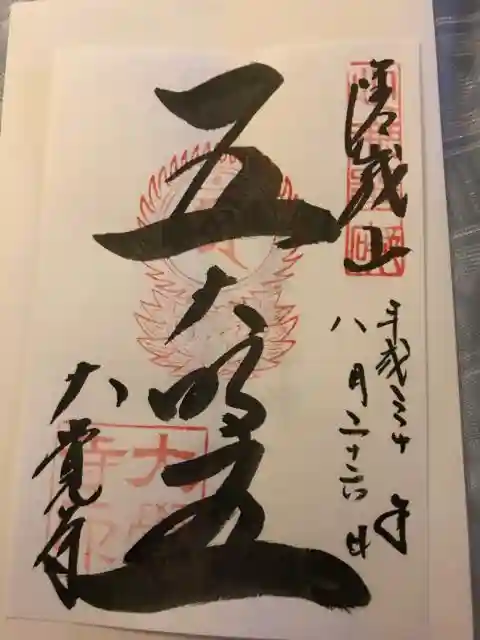 嵯峨山
平成三十年
八月二十六日
五大明王
大覚寺